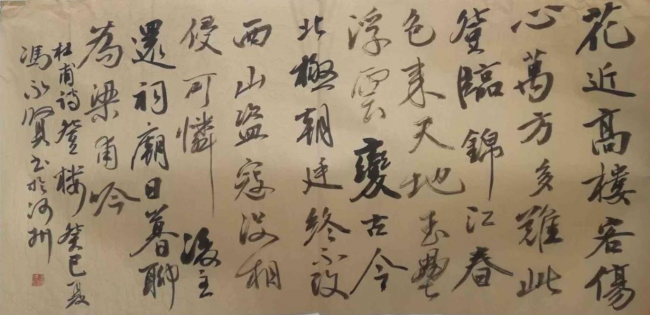 花近高樓客傷
心萬方多難此
登臨錦江春
色來天地玉壘
浮雲變古今
北極朝廷終不改
西山盜寇沒相
侵可憐後主
還祠廟日暮聊
為梁甫吟
杜甫詩登樓癸巳夏
馮永賢書於